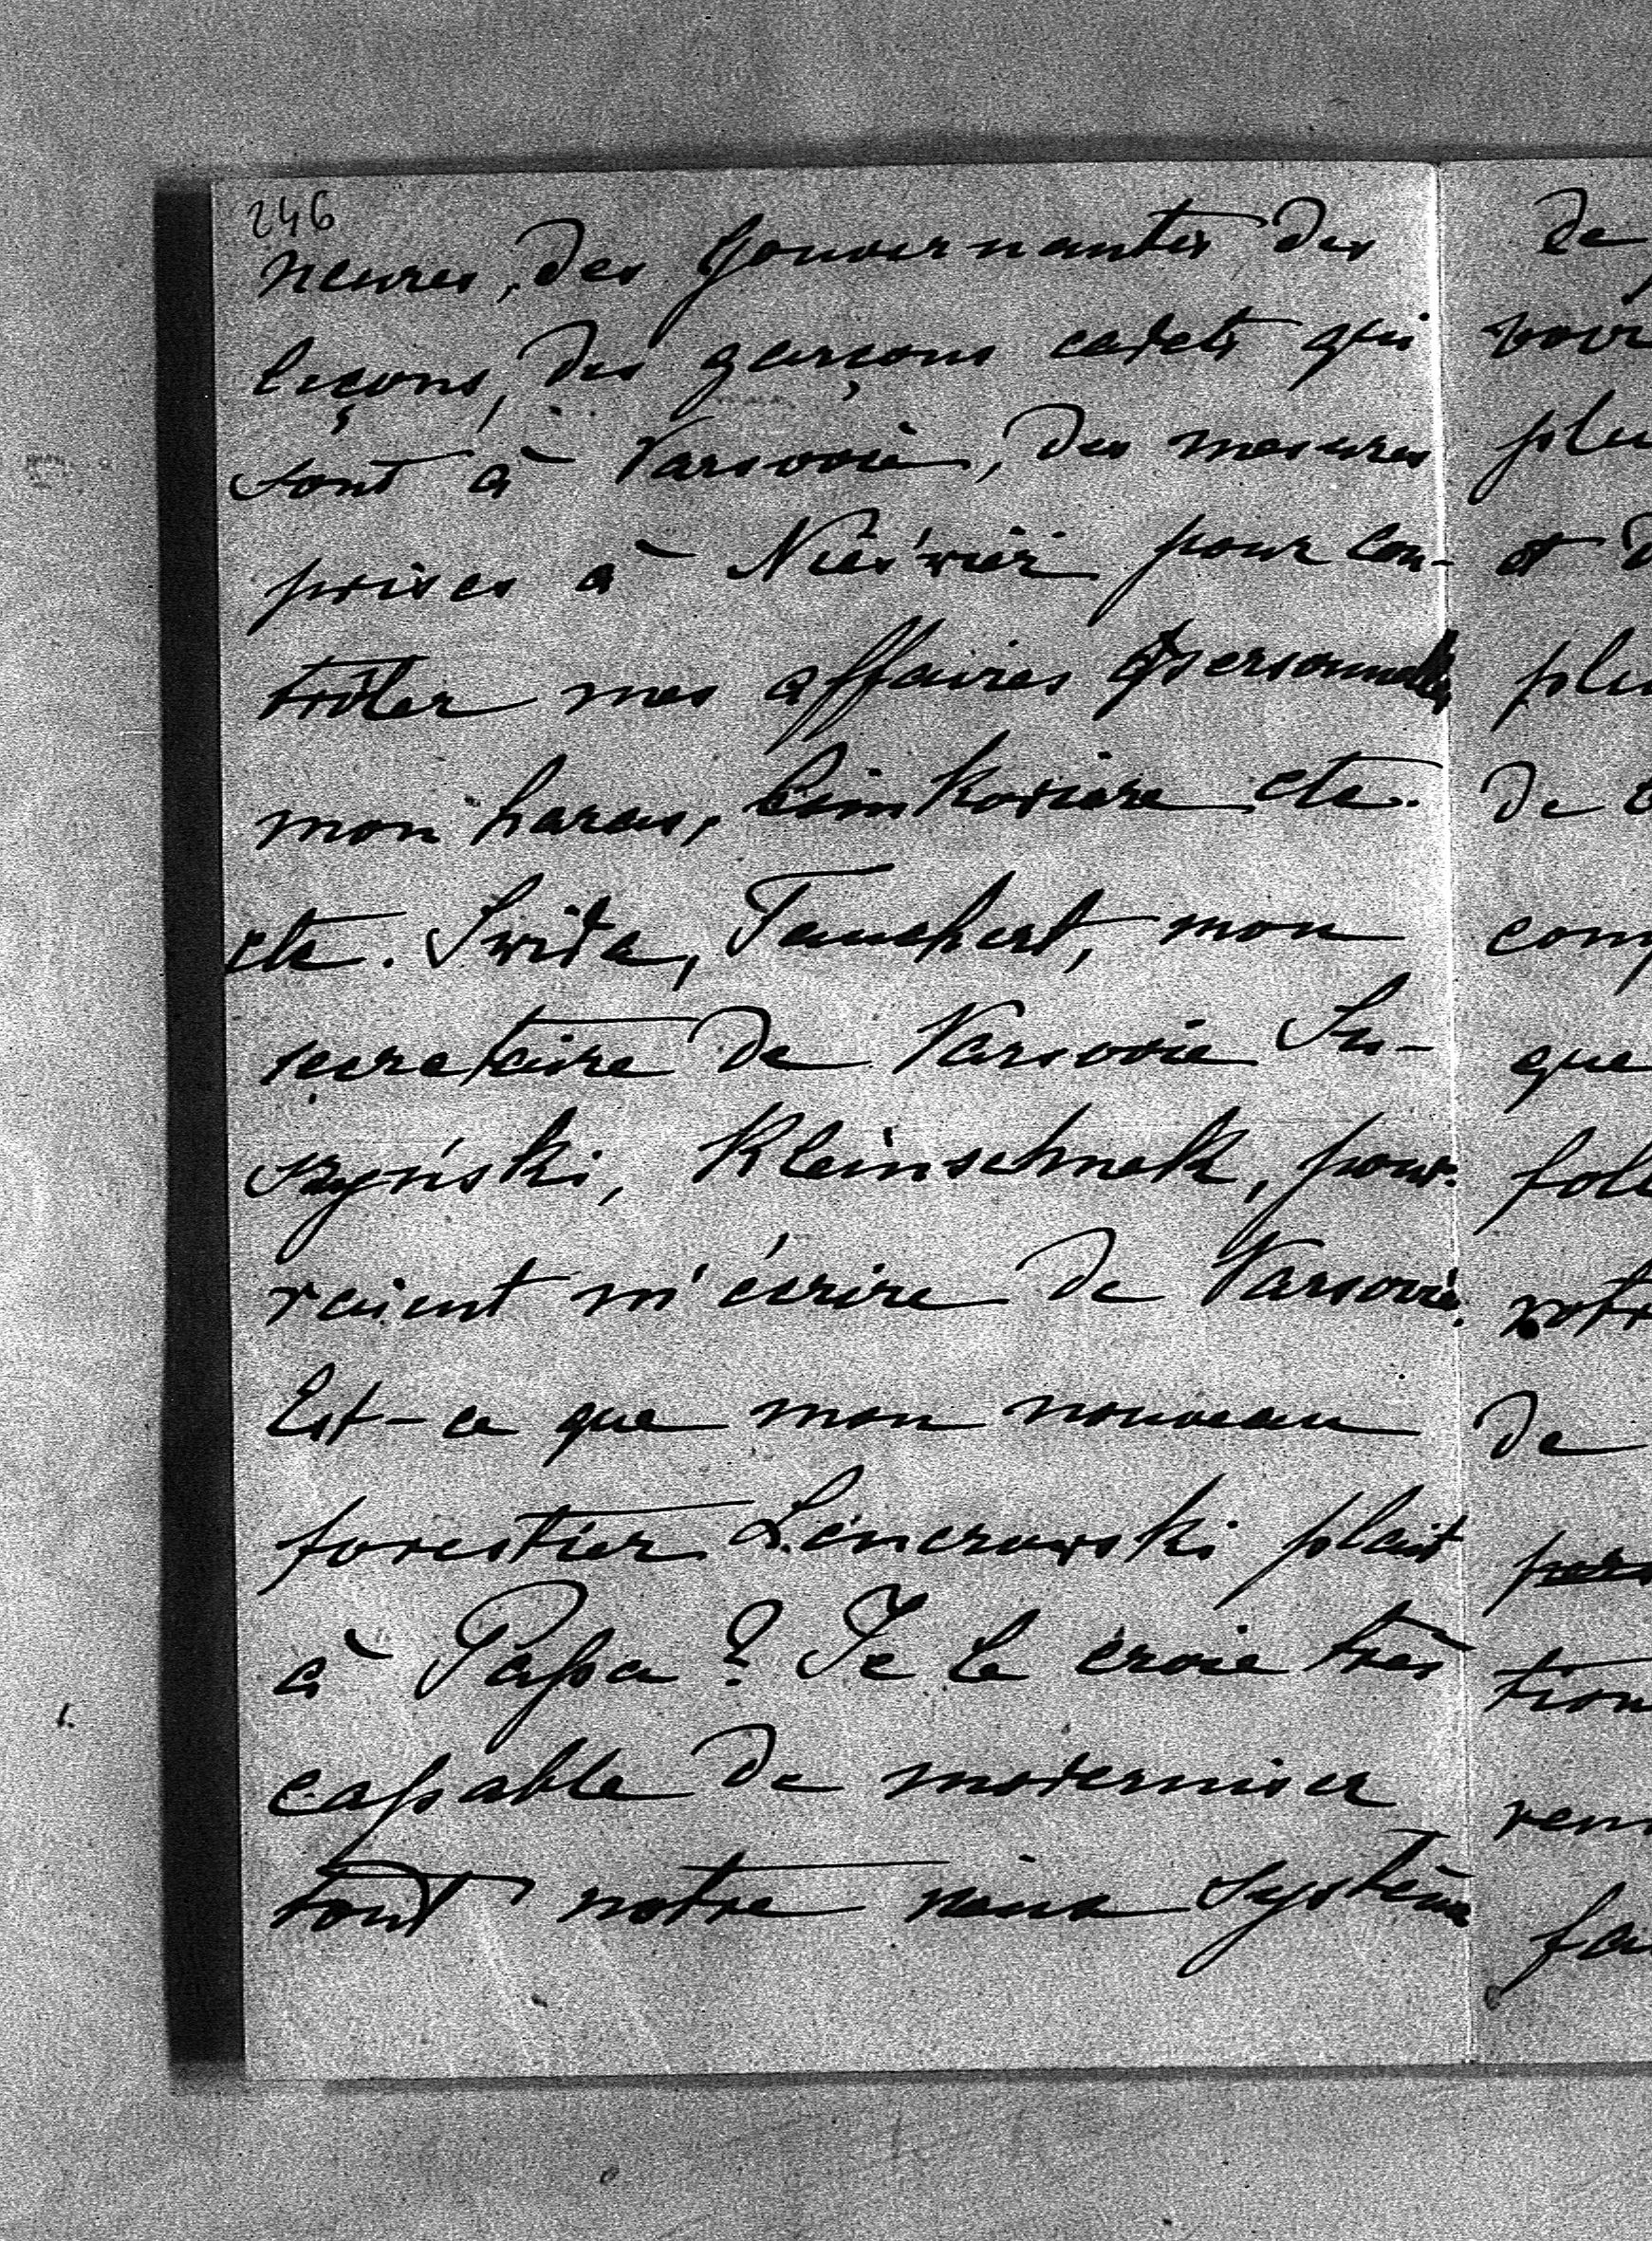 246
neures, des gouvernantes des
leçons, des garçons cadets qui
sont à Varsovie, des mesures
prises à Nieśwież pour con-
trôler mes affaires personnelles
mon haras, etc.
etc. Swida, Tauchert, mon
secretaire de Varsovie Su-
szyński, Kleinschnek, pour-
raient m'écrire de Varsovie.
Est-ce que mon nouveau
forestier Lenczewski plait
à Papa? Je le crois très
capable de moderniser
tout notre vieux système
de
voir
plus
et d
plu
de c
comp
que
foll
votr
de
tion
fa